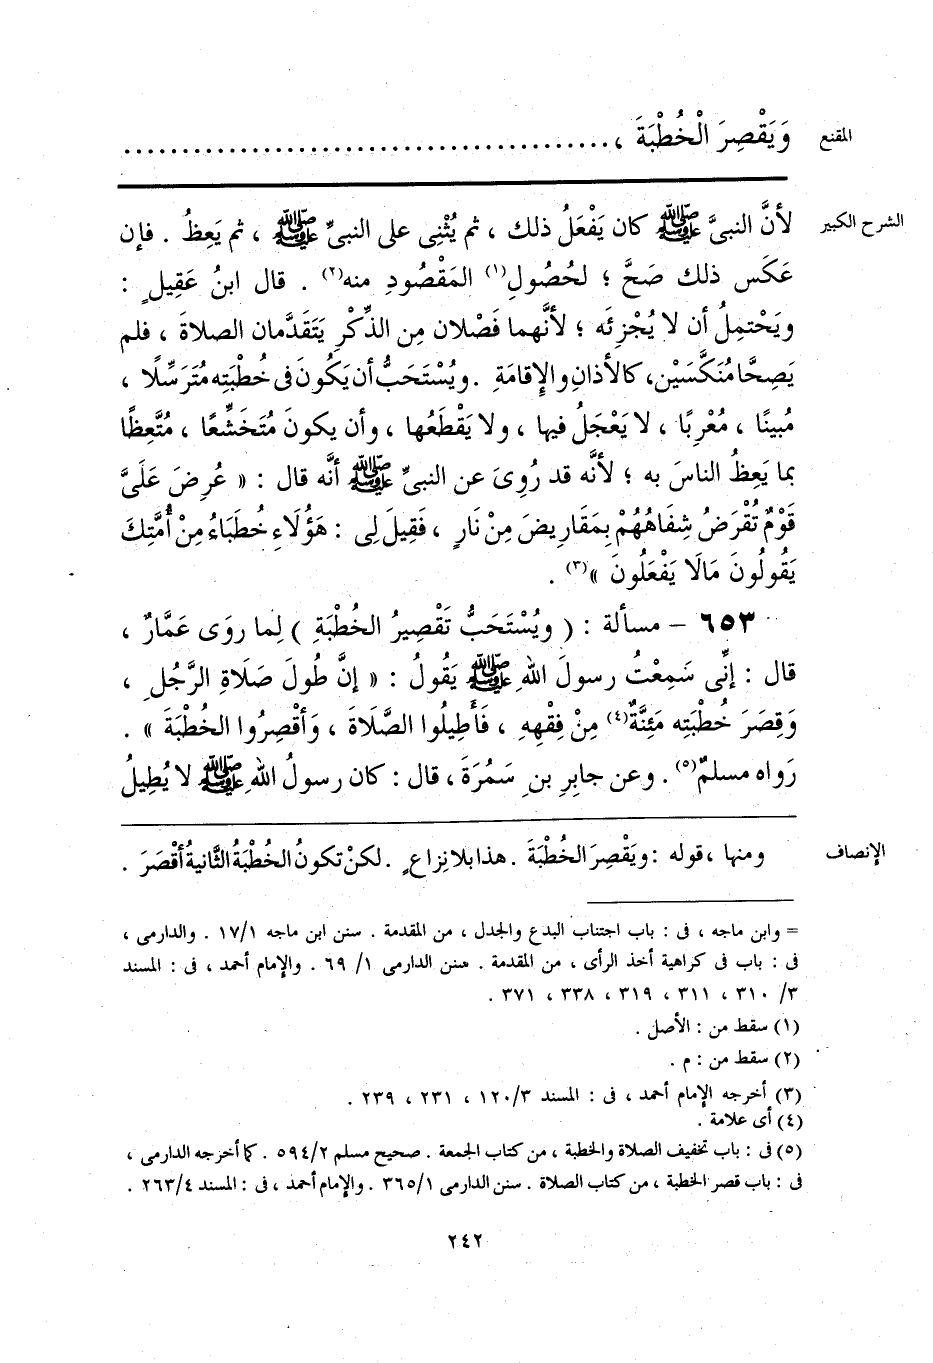 المقنع وَيَقْصِرَ الْخُطْبَةَ ، ........................................
الشرح الكبير لأنَّ النبىَّ ﷺ كان يَفْعَلُ ذلك ، ثم يُثْنِى على النبىِّ ﷺ ، ثم يَعِظُ . فإن
عَكَس ذلك صَحَّ ؛ لحُصُولِ(١) المَقْصُودِ منه(٢) . قال ابنُ عَقِيلٍ :
ويَحْتمِلُ أن لا يُجْزِئَه ؛ لأنَّهما فَصْلان مِن الذِّكْرِ يَتَقَدَّمان الصلاةَ ، فلم
يَصِحَّا مُنَكَّسَيْن، كالأذانِ والإِقامَةِ . ويُسْتَحَبُّ أن يَكُونَ فى خُطْبَتِه مُتَرَسِّلًا ،
مُبينًا ، مُعْرِبًا ، لا يَعْجَلُ فيها ، ولا يَقْطَعُها ، وأن يكونَ مُتَخَشِّعًا ، مُتَّعِظًا
بما يَعِظُ الناسَ به ؛ لأنَّه قد رُوِىَ عن النبىِّ ﷺ أنَّه قال : « عُرِضَ عَلَىَّ
قَوْمٌ تُقْرَضُ شِفَاهُهُمْ بِمَقَارِيضَ مِنْ نَارٍ ، فَقِيلَ لِى : هَؤُلَاءِ خُطَبَاءُ مِنْ أُمَّتِكَ
يَقُولُونَ مَالَا يَفْعَلُونَ »(٣) .
٦٥٣ – مسألة : ( ويُسْتَحَبُّ تَقْصِيرُ الخُطْبَةِ ) لِما روَى عَمَّارٌ ،
قال : إنِّى سَمِعْتُ رسولَ اللهِ ﷺ يَقُولُ : « إنَّ طُولَ صَلَاةِ الرَّجُلِ ،
وَقِصَرَ خُطْبَتِه مَئِنَّةٌ(٤) مِنْ فِقْهِهِ ، فَأَطِيلُوا الصَّلَاةَ ، وَأقْصِرُوا الخُطْبَةَ » .
رَواه مسلمٌ(٥) . وعن جابِرِ بنِ سَمُرَةَ ، قال : كان رسولُ اللهِ ﷺ لا يُطِيلُ
الإنصاف ومنها ، قوله : ويَقْصِرَ الخُطْبَةَ . هذا بلا نِزاعٍ . لكنْ تكونُ الخُطْبَةُ الثَّانيةُ أقْصَرَ .
= وابن ماجه ، فى : باب اجتناب البدع والجدل ، من المقدمة . سنن ابن ماجه ١/ ١٧ . والدارمى ،
فى : باب فى كراهية أخذ الرأى ، من المقدمة . سنن الدارمى ١/ ٦٩ . والإمام أحمد ، فى : المسند
٣/ ٣١٠ ، ٣١١ ، ٣١٩ ، ٣٣٨ ، ٣٧١ .
(١) سقط من : الأصل .
(٢) سقط من : م .
(٣) أخرجه الإمام أحمد ، فى : المسند ٣/ ١٢٠ ، ٢٣١ ، ٢٣٩ .
(٤) أى علامة .
(٥) فى : باب تخفيف الصلاة والخطبة ، من كتاب الجمعة . صحيح مسلم ٢/ ٥٩٤ . كما أخرجه الدارمى ،
فى : باب قصر الخطبة ، من كتاب الصلاة . سنن الدارمى ١/ ٣٦٥ . والإمام أحمد ، فى : المسند ٤/ ٢٦٣ .
٢٤٢